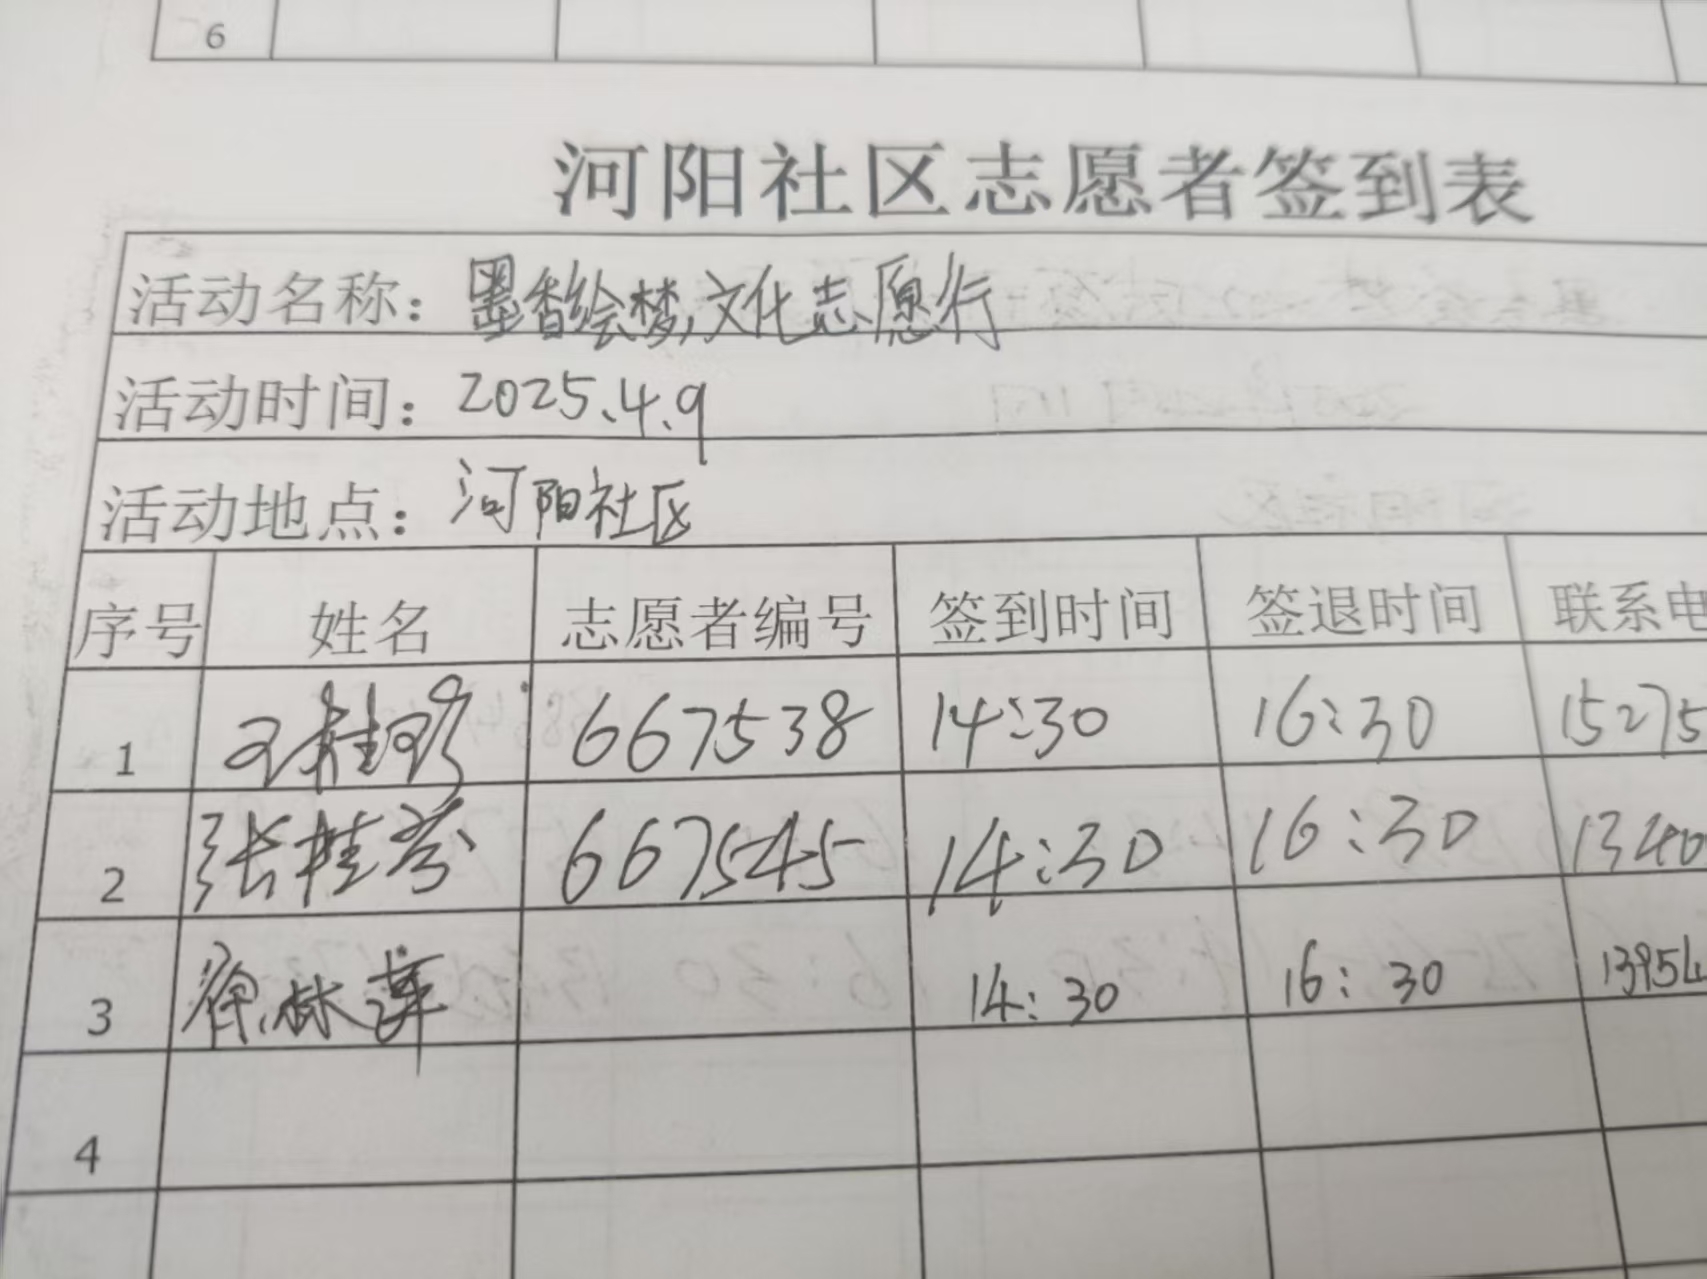 6
河阳社区志愿者签到表
活动名称：墨香绘梦，文化志愿行
活动时间：2025.4.9
活动地点：河阳社区
序号 姓名 志愿者编号 签到时间 签退时间 联系电
1 王桂珍 667538 14:30 16:30 15275
2 张桂芬 667545 14:30 16:30 1340
3 徐林 14:30 16:30 13954
4